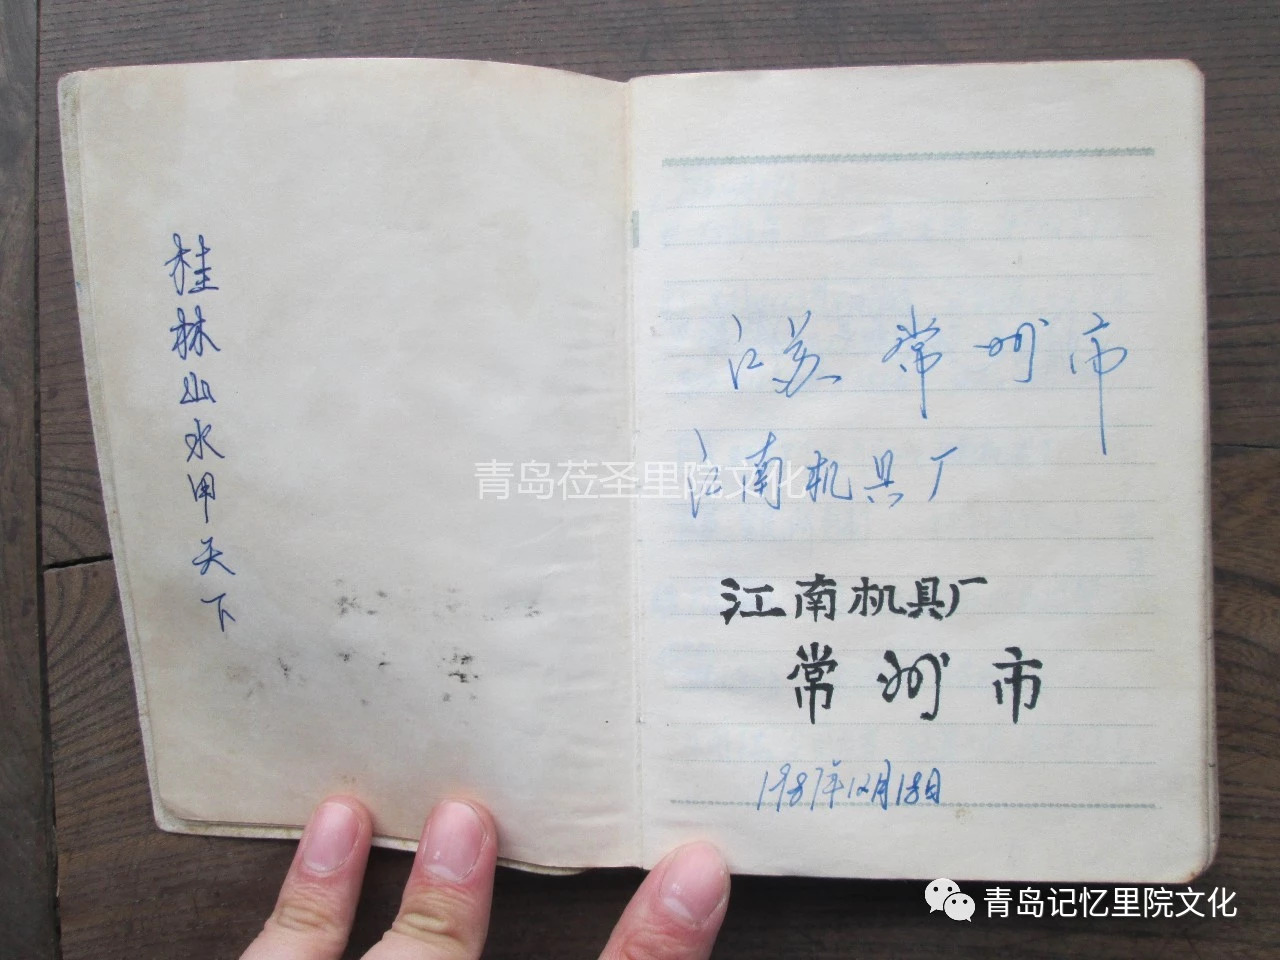 桂林山水甲天下
江苏常州市
江南机具厂
江南机具厂
常州市
1987年12月18日
青岛莅圣里院文化
青岛记忆里院文化